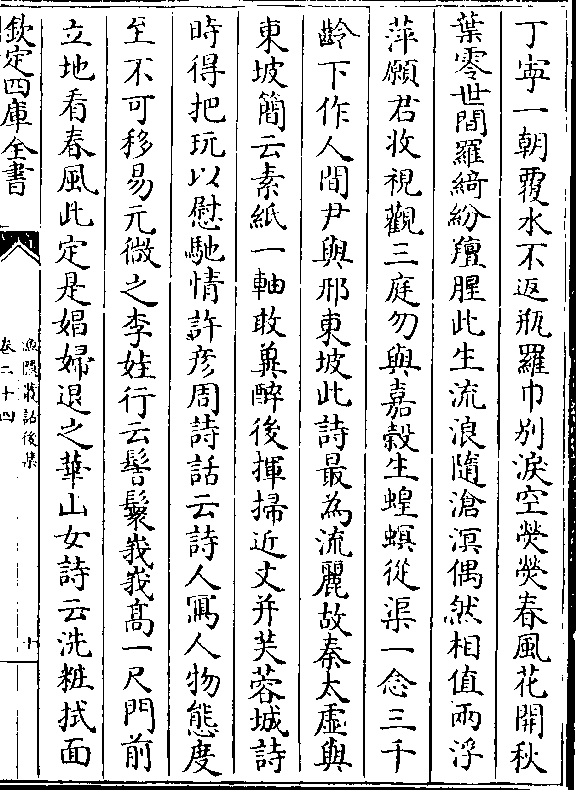 丁寧一朝覆水不返瓶羅巾别淚空熒熒春風花開秋
葉零世間羅綺紛羶腥此生流浪隨滄溟偶然相值兩浮
萍願君收視觀三庭勿與嘉穀生蝗螟從渠一念三千
齡下作人間尹與邢東坡此詩最為流麗故秦太虛與
東坡簡云素紙一軸敢兾醉後揮掃近文并芙蓉城詩
時得把玩以慰馳情許彦周詩話云詩人寫人物態度
至不可移易元微之李娃行云髻鬟峩峩髙一尺門前
立地看春風此定是娼婦退之華山女詩云洗粧拭面
欽定四庫全書
漁隱叢話後集
卷二十四
十